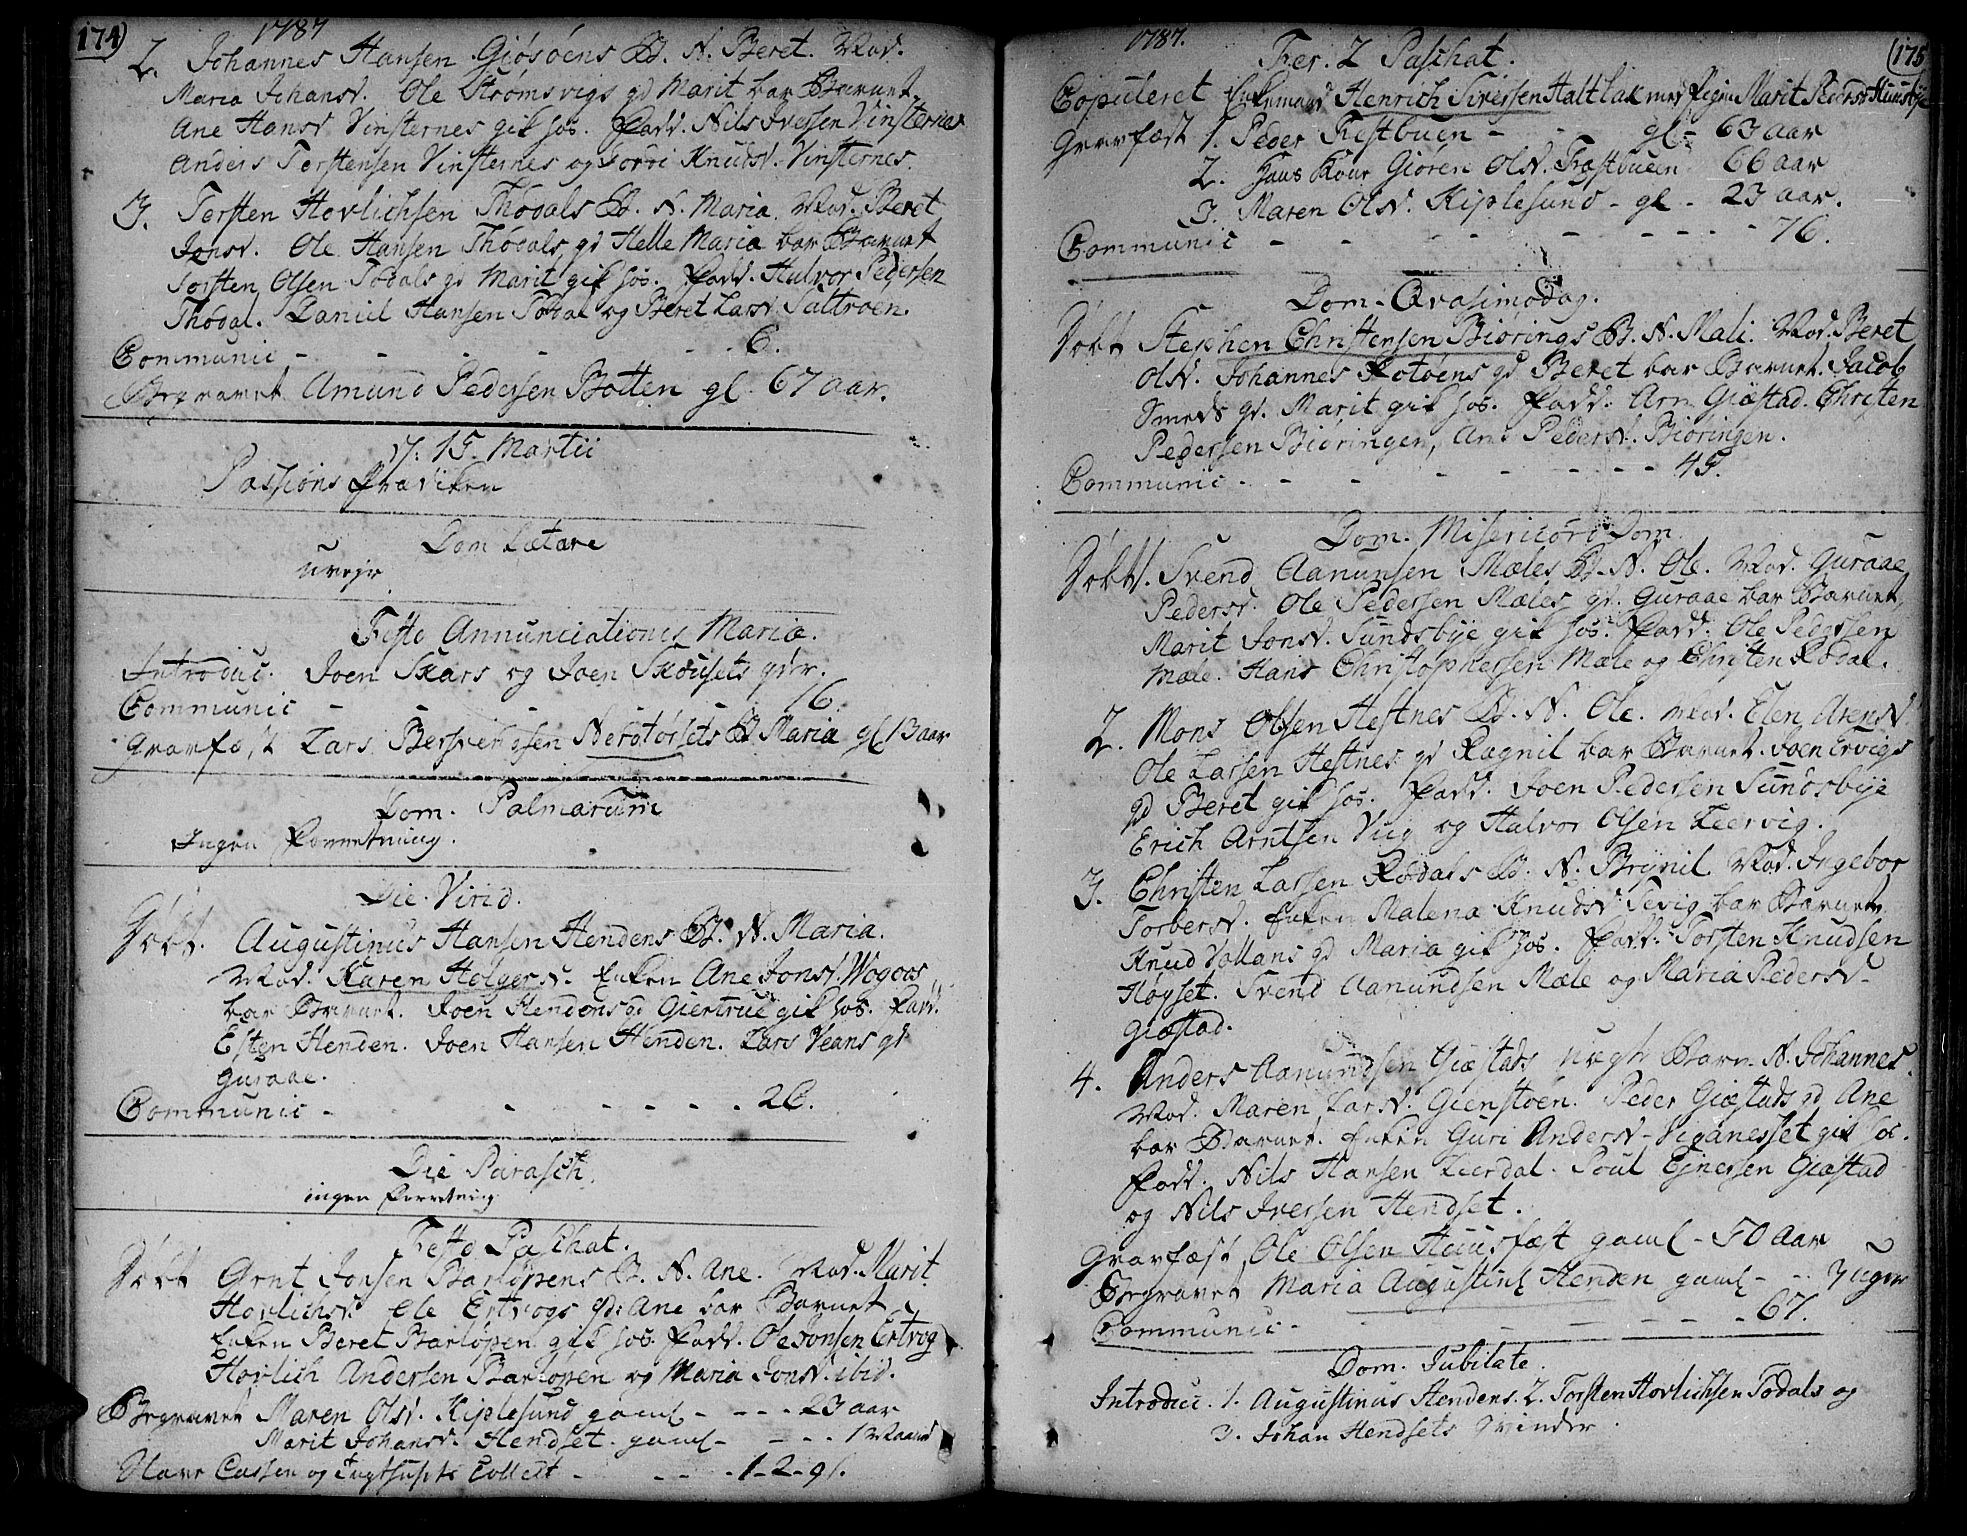 174)
1787
2. Johannes Hansen Giøsøens B. N. Beret. Mod.
Maria Johansd. Ole Strømsvigs qd Marit bar Barnet.
Ane Hansd Vinsternes gik hos. Fadd. Nils Iversen Vinsternes
Anders Torstensen Vinsternes og Knudsd. Vinsternes.
3. Torsten Hovlichsen Thodals B. N. Maria. Mod. Beret
Jonsd. Ole Hansen Thodals qd Helle Maria bar Barnet
Torsten Olsen Todals qd Marit gik hos. Fadd. Halvor Pedersen
Thodal. Daniel Hansen Todal og Beret Larsd. Sattroen.
Communic - - - - 6.
Begravet Amund Pedersen Botten gl. 67 aar.
d: 15. Martii
Passions Prædiken
Dom Lætare
uvejr
Festo Annunciationes Mariæ.
Introduc. Joen Skars og Joen Skousets qvr.
Communic - - - - 16.
Gravfæst Lars Bersvensen Nerdtørsets B Maria gl 13 aar
Dom. Palmarum
Ingen Forretning.
Die Virid.
Døbt. Augustinus Hansen Hendens B. N. Maria.
Mod. Karen Holgersd. Enken Ane Jonsd. Wogoes
bar Barnet. Joen Hendens qd Giertrue gik hos. Fadd.
Esten Henden. Joen Hansen Henden. Lars Veans qd
Guraae.
Communic - - - - - - 26.
Die Parasch.
ingen Forretning
Festo Paschat.
Døbt Arnt Jonsen Barløpens B. N. Ane. Mod. Marit
Hovlichsd. Ole Ertvogs qd: Ane bar Barnet
Enken Beret Barløpen gik hos. Fadd. Ole Jonsen Ertvog
Hovlich Andersen Barløpen og Maria Jonsd. ibid.
Begravet Maren Olsd. Kiplesund gaml - - - 23 aar
Marit Johansd. Hendset. gaml - - - 1 Maaned
Tavle Cassen og Collect - - - - 1-2-9
1787.
(175
Fer. 2 Paschat.
Copuleret Enkemand Henrich Sivertsen Haltlak med Pigen Marit Pedersd Huusbye
Gravfæst 1. Peder Frostbuen - - gl - 63 aar
2. Hans Kone Giøren Olsd. Frostbuen 66 aar
3. Maren Olsd. Kiplesund - gl - 23 aar.
Communic - - - - - - - - 76.
Dom. Qvasimodog.
Døbt Stephen Christensen Biørings B. N. Mali. Mod. Beret
Olsd. Johannes Rotøens qd Beret bar Barnet. Jacob
Smeds qd. Marit gik hos. Fadd. Arn Giøstad. Christen
Pedersen Biøringen, Ane Pedersd. Biøringen.
Communic - - - - - - - - 45.
Dom. Misericord Dom
Døbt 1. Svend Aanunsen Mæles B. N. Ole. Mod. Guraae
Pedersd. Ole Pedersen Mæles qd. Guraae bar Barnet,
Marit Jonsd. Sundsbye gik hos. Fadd: Ole Pedersen
Mæle. Hans Christophersen Mæle og Christen Rodal.
2. Mons Olsen Hestnes B. N. Ole. Mod. Elen Arensd.
Ole Larsen Hestnes qd Ragnil bar Barnet. Joen Ervigs
qd Beret gik hos. Fadd. Joen Pedersen Sundsbye
Erich Arntsen Vug og Halvor Olsen Leervig.
3. Christen Larsen Rodals B. N. Brynil. Mod. Ingebor
Torbersd. Enken Malena Knudsd. Tevig bar Barnet
Knud Vollans qd Maria gik hos. Fadd: Torsten Knudsen
Høyset. Svend Aamundsen Mæle og Maria Pedersd
Giøstad.
4. Anders Aamundsen Giøstads uægte Barn N. Johannes.
Mod. Maren Larsd. Gienstøen. Peder Giøstads qd Ane
bar Barnet. Enken Guri Andersd Viganesset gik hos.
Fadd. Nils Hansen Leerdal. Poul Ejnersen Giøstad
og Nils Iversen Hendset.
Gravfæst Ole Olsen Huusfæst gaml - 50 aar
Begravet Maria Augustins Henden gaml - - 3 uger
Communic - - - - - - 67.
Dom. Jubilate.
Introduc. 1. Augustinus Hendens. 2. Torsten Hovlichsen Todals og
3. Johan Hendsets Qvinder.